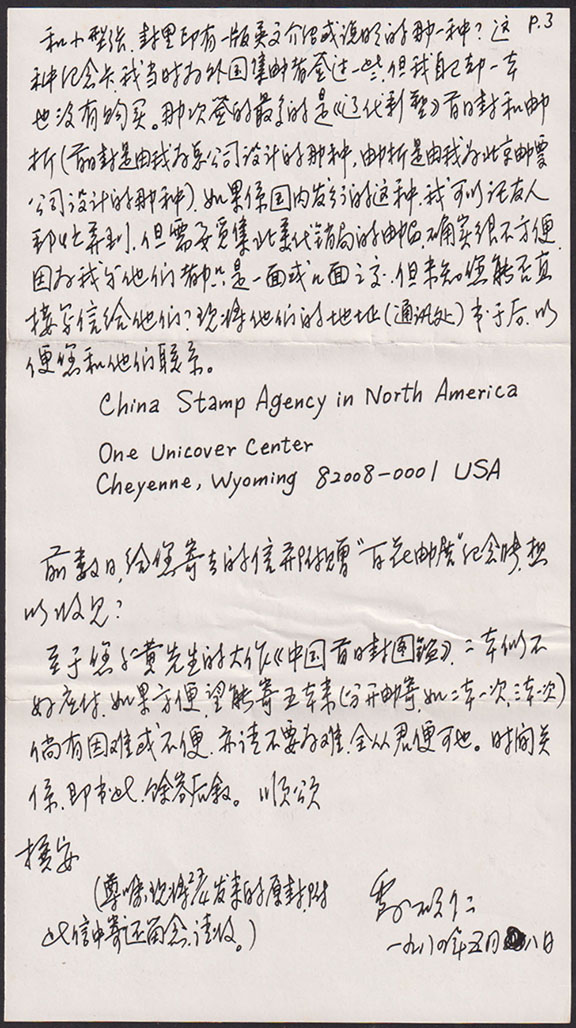 P.3
和小型张,封里印有一版英文介绍或说明的那一种?这
种纪念卡我当时为外国集邮者签过一些,但我自己却一本
也没有购买。那次签的最多的是《辽代彩塑》首日封和邮
折(首日封是由我为总公司设计的那种,邮折是由我为北京邮票
公司设计的那种)。如果系国内发行的这种,我可以托友人
到处弄到,但需要觅集北美代销局的邮品,确实很不方便,
因为我与他们都只是一面或几面之交,但未知您能否直
接写信给他们?现将他们的地址(通讯处)书于后,以
便您和他们联系。
China Stamp Agency in North America
One Unicover Center
Cheyenne, Wyoming 82008-0001 USA
前数日,给您寄去的信并附赠"百花邮展"纪念 想
以收见?
至于您与黄先生的大作《中国首日封图鉴》,二本似不
好应付,如果方便望能寄五本来(分开邮寄,如二本一次,三本一次)
倘有困难或不便,亦请不要为难,全从君便可也。时间关
系,即书此,馀容后叙。 顺颂
撰安
(尊嘱现将 发来的原封附
此信中寄还留念,请收。)
一九八 年五月 八日